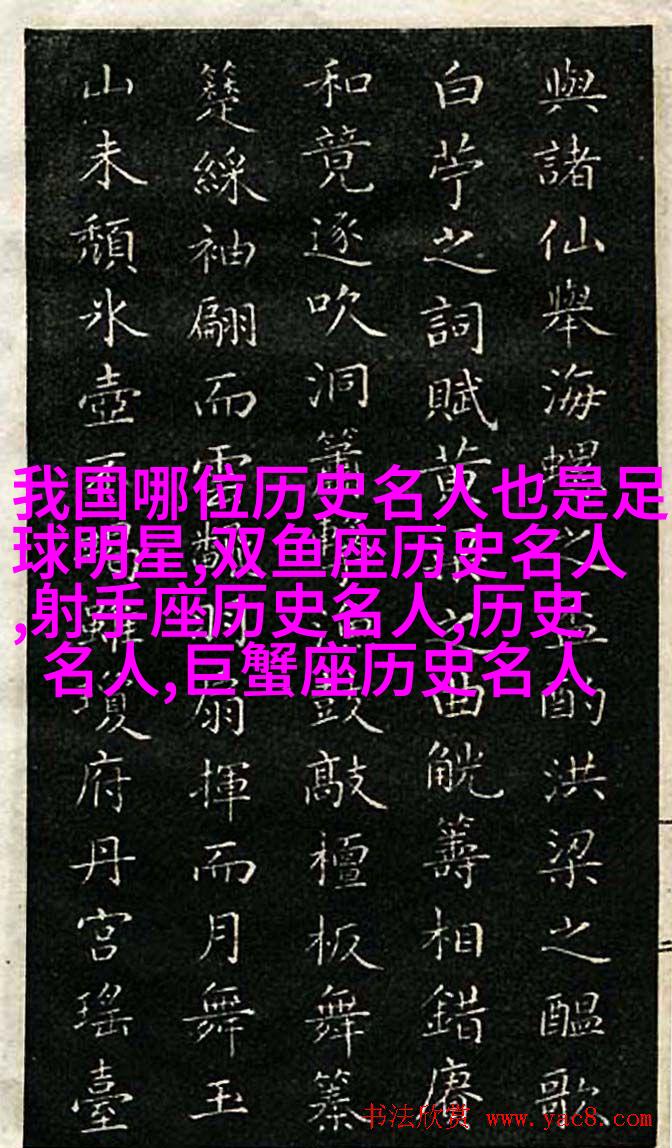 我国哪位历史名人也是足
球明星,双鱼座历史名人
,射手座历史名人,历史
名人,巨蟹座历史名人
與諸仙舉海螺之酌洪梁之醖歌
白苧之詞賦黄之曲觥籌相錯賡
和竟逐吹洞簫鼓敲檀板舞
綵袖翩而翻扇揮而月舞玉
山未頽氷壺瓊府丹宮瑤臺
书法欣赏 www.yac8.com